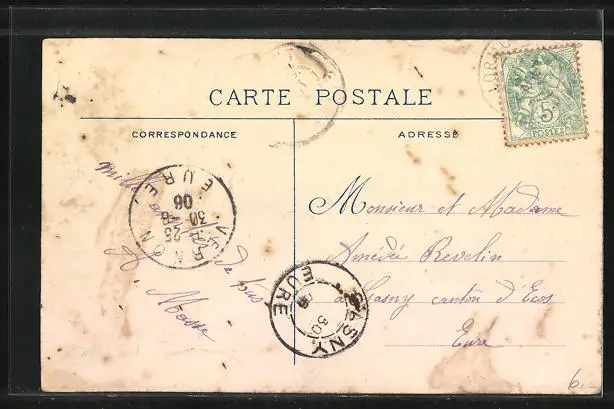 CARTE POSTALE
CORRESPONDANCE
ADRESSE
5c
POSTES
mille
de tous
A. Masse
VERNON
EURE
25 -8
30
06
GASNY
EURE
30
Monsieur et Madame
Amédée Revelin
à Gasny canton d'Ecos
Eure
6.